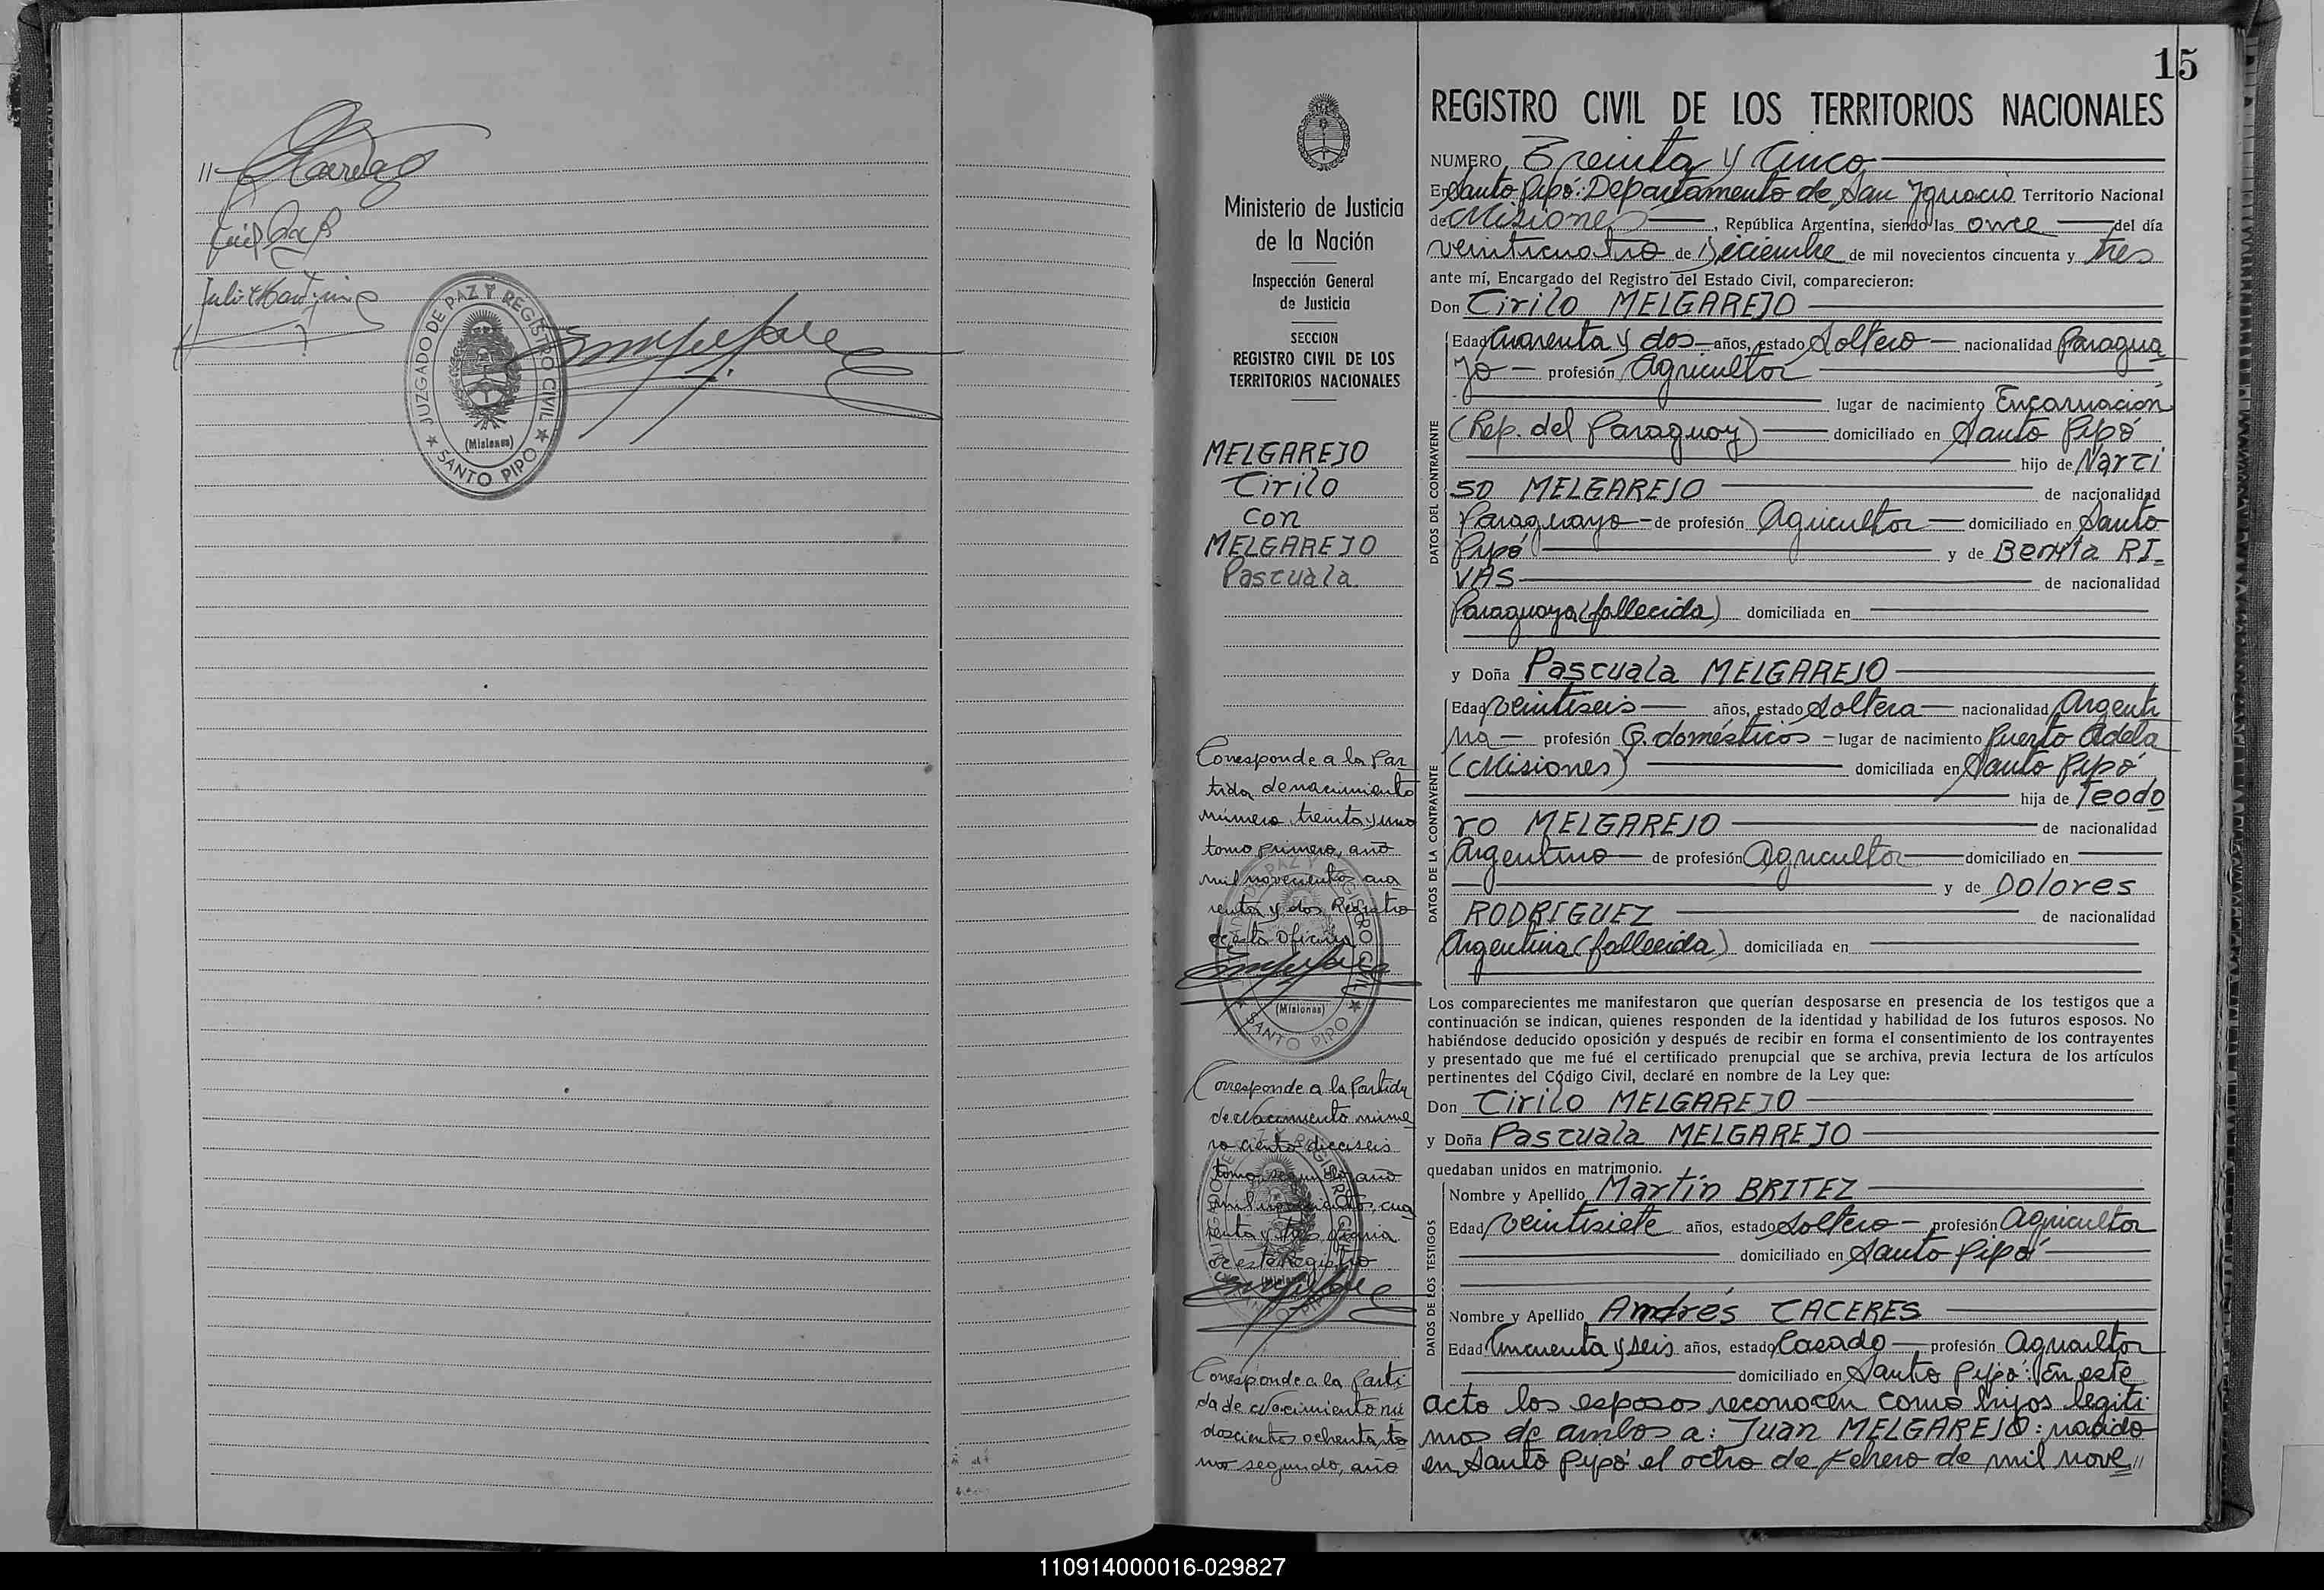 15
JUZGADO DE PAZ Y REGISTRO CIVIL
(Misiones)
SANTO PIPO
Ministerio de Justicia
de la Nación
Inspección General
de Justicia
SECCION
REGISTRO CIVIL DE LOS
TERRITORIOS NACIONALES
MELGAREJO
Cirilo
con
MELGAREJO
Pascuala
Corresponde a la Par
tida de nacimiento
número treinta y uno
tomo primero, año
mil novecientos cua
renta y dos Registro
de esta Oficina
(Misiones)
SANTO PIPO
Corresponde a la Partida
de Nacimiento núme
ro ciento dieciseis
tomo segundo año
mil novecientos cua
renta y tres
de este Registro
Corresponde a la Parti
da de Nacimiento nú
doscientos ochenta, to
mo segundo, año
REGISTRO CIVIL DE LOS TERRITORIOS NACIONALES
NUMERO Treinta y Cinco
En Santo Pipó: Departamento de San Ignacio Territorio Nacional
de Misiones, República Argentina, siendo las once del día
veinticuatro de Diciembre de mil novecientos cincuenta y tres
ante mí, Encargado del Registro del Estado Civil, comparecieron:
Don Cirilo MELGAREJO
DATOS DEL CONTRAYENTE
Edad Cuarenta y dos años, estado Soltero nacionalidad Paragua
yo profesión Agricultor
lugar de nacimiento Encarnación
(Rep. del Paraguay) domiciliado en Santo Pipó
hijo de Narci
so MELGAREJO de nacionalidad
Paraguayo de profesión Agricultor domiciliado en Santo
Pipó y de Benita RI-
VAS de nacionalidad
Paraguaya (fallecida) domiciliada en
y Doña Pascuala MELGAREJO
DATOS DE LA CONTRAYENTE
Edad Veintiseis años, estado Soltera nacionalidad Argenti
na profesión Q. domésticos lugar de nacimiento Puerto Adela
(Misiones) domiciliada en Santo Pipó
hija de Teodo
ro MELGAREJO de nacionalidad
Argentino de profesión Agricultor domiciliado en
y de Dolores
RODRIGUEZ de nacionalidad
Argentina (fallecida) domiciliada en
Los comparecientes me manifestaron que querían desposarse en presencia de los testigos que a
continuación se indican, quienes responden de la identidad y habilidad de los futuros esposos. No
habiéndose deducido oposición y después de recibir en forma el consentimiento de los contrayentes
y presentado que me fué el certificado prenupcial que se archiva, previa lectura de los artículos
pertinentes del Código Civil, declaré en nombre de la Ley que:
Don Cirilo MELGAREJO
y Doña Pascuala MELGAREJO
quedaban unidos en matrimonio.
DATOS DE LOS TESTIGOS
Nombre y Apellido Martín BRITEZ
Edad Veintisiete años, estado Soltero profesión Agricultor
domiciliado en Santo Pipó
Nombre y Apellido Andrés CACERES
Edad Cincuenta y seis años, estado Casado profesión Agricultor
domiciliado en Santo Pipó: En este
acto los esposos reconocen como hijos legíti
mos de ambos a: Juan MELGAREJO: nacido
en Santo Pipó el ocho de Febrero de mil nove //
110914000016-029827